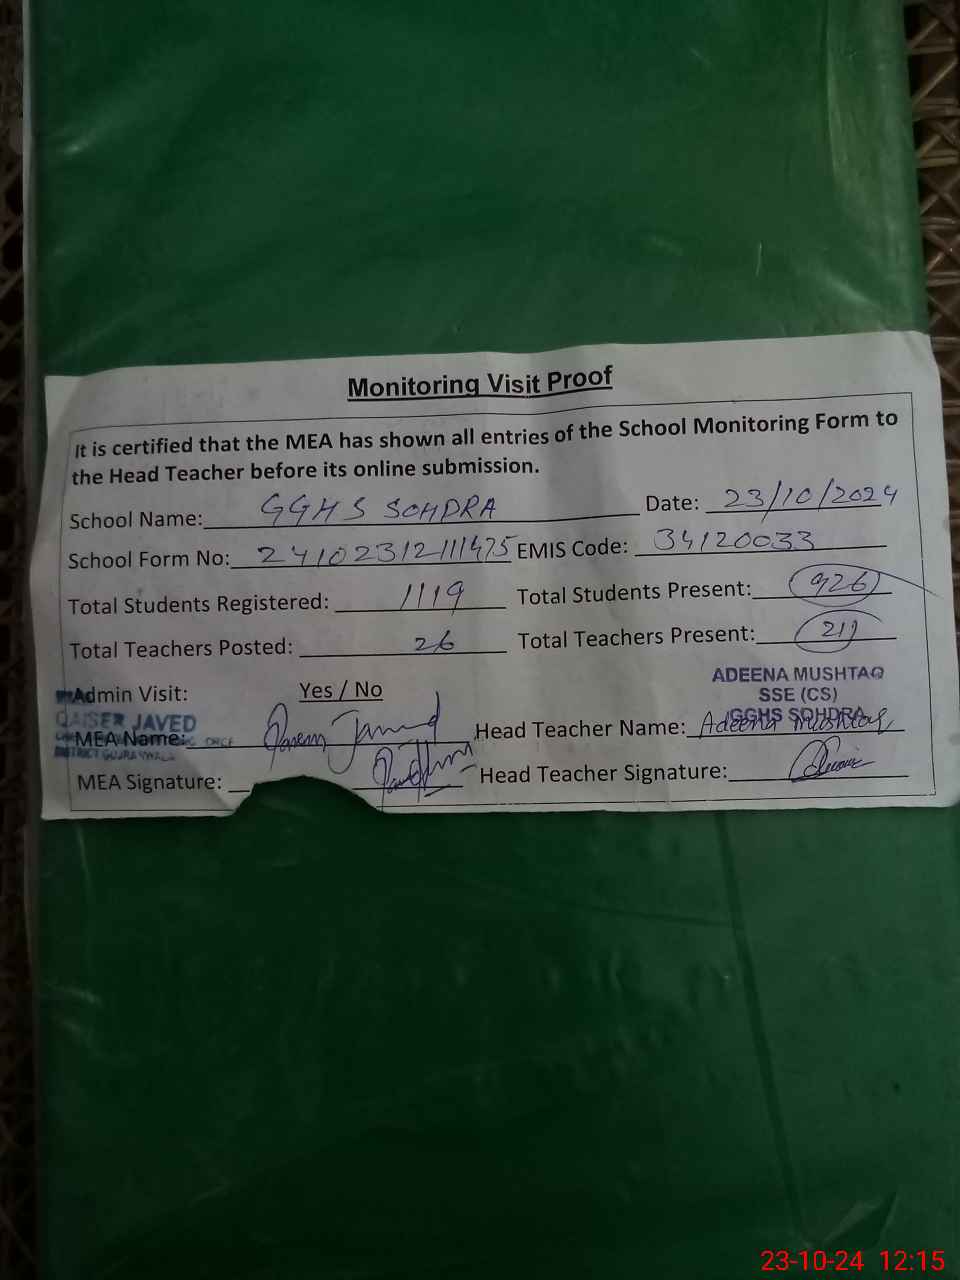 Monitoring Visit Proof
It is certified that the MEA has shown all entries of the School Monitoring Form to
the Head Teacher before its online submission.
School Name: GGHS SOHDRA Date: 23/10/2024
School Form No: 24102312111475 EMIS Code: 34120033
Total Students Registered: 1119 Total Students Present: 926
Total Teachers Posted: 26 Total Teachers Present:
Admin Visit: Yes / No
ADEENA MUSHTAQ
SSE (CS)
GGHS SOHDRA
QAISER JAVED
MEA Name: Head Teacher Name: Adeena Mushtaq
MEA Signature: Head Teacher Signature:
23-10-24 12:15